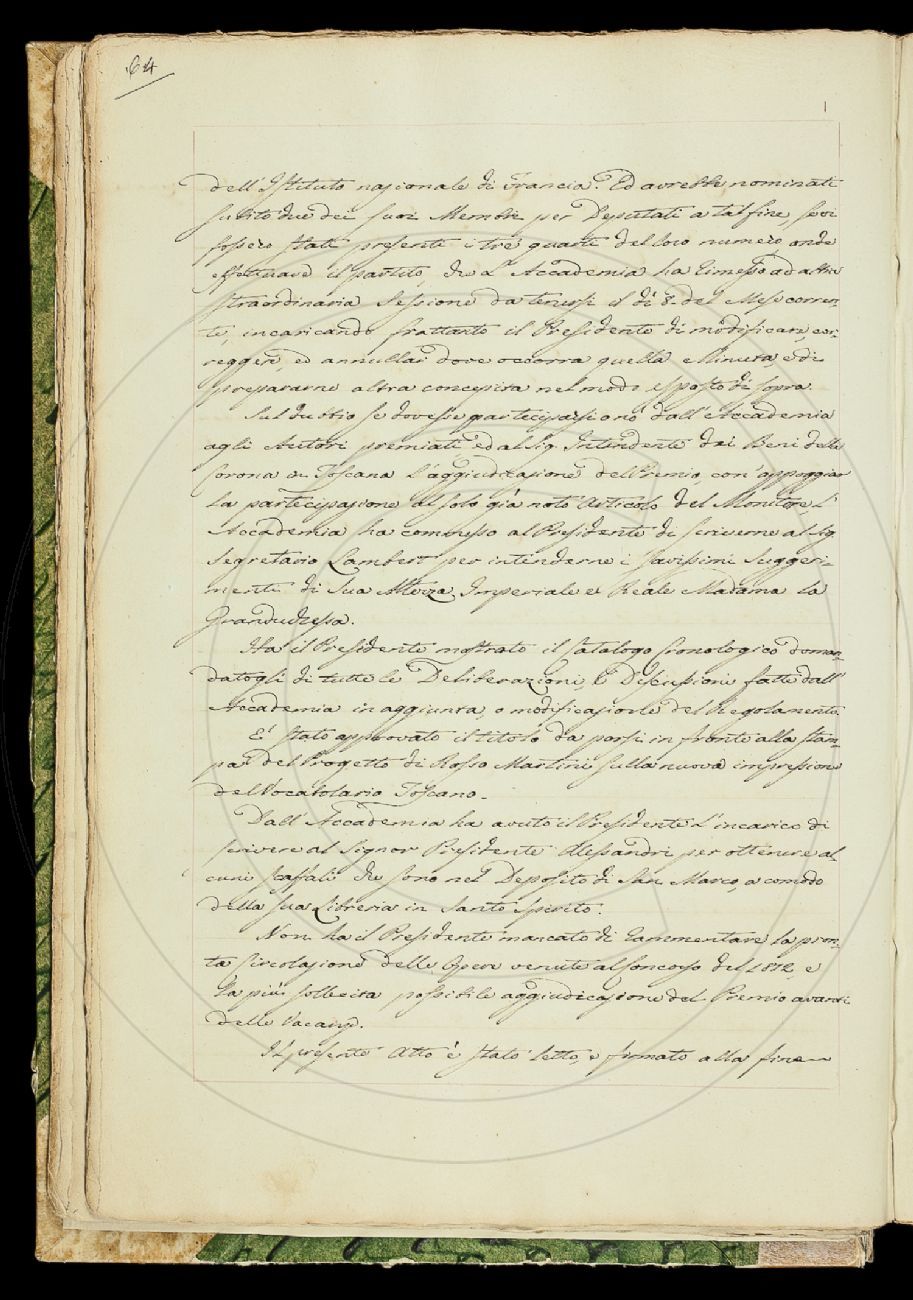 64
dell'Istituto nazionale di Francia. Ed avrebbe nominati
subito due dei suoi Membri per Deputati a tal fine, se vi
fossero stati presenti i tre quarti del loro numero, onde
effettuare il partito, che l'Accademia ha rimesso ad altra
straordinaria Sessione da tenersi il dì 8. del Mese corren-
te, incaricando frattanto il Presidente di modificare, cor-
reggere, ed annullar dove occorra quella Minuta, e di
prepararne altra concepita nel modo esposto di sopra.
Sul dubbio se dovesse parteciparsi o nò dall'Accademia
agli Autori premiati, ed al Sig. Intendente dei Beni della
Corona in Toscana l'aggiudicazione del Premio, con appoggiar
la partecipazione al solo già noto Articolo del Monitore, l'
Accademia ha commesso al Presidente di scriverne al Sig.
Segretario Lambert per intenderne i savissimi suggeri-
menti di Sua Altezza Imperiale e Reale Madama la
Granduchessa.
Ha il Presidente mostrato il Catalogo Cronologico doman-
datogli di tutte le Deliberazioni, e Discussioni fatte dall'
Accademia in aggiunta, o modificazione del Regolamento.
E' stato approvato il titolo da porsi in fronte alla stam-
pa del Progetto di Rosso Martini sulla nuova impressione
del Vocabolario Toscano.
Dall'Accademia ha avuto il Presidente l'incarico di
scrivere al Signor Presidente Alessandri per ottenere al-
cuni scaffali che sono nel Deposito di San Marco, a comodo
della sua Libreria in Santo Spirito.
Non ha il Presidente mancato di rammentare la pron-
ta Circolazione delle Opere venute al Concorso del 1812, e
la più sollecita possibile aggiudicazione del Premio avanti
delle Vacanze.
Il presente Atto è stato letto, e firmato alla fine